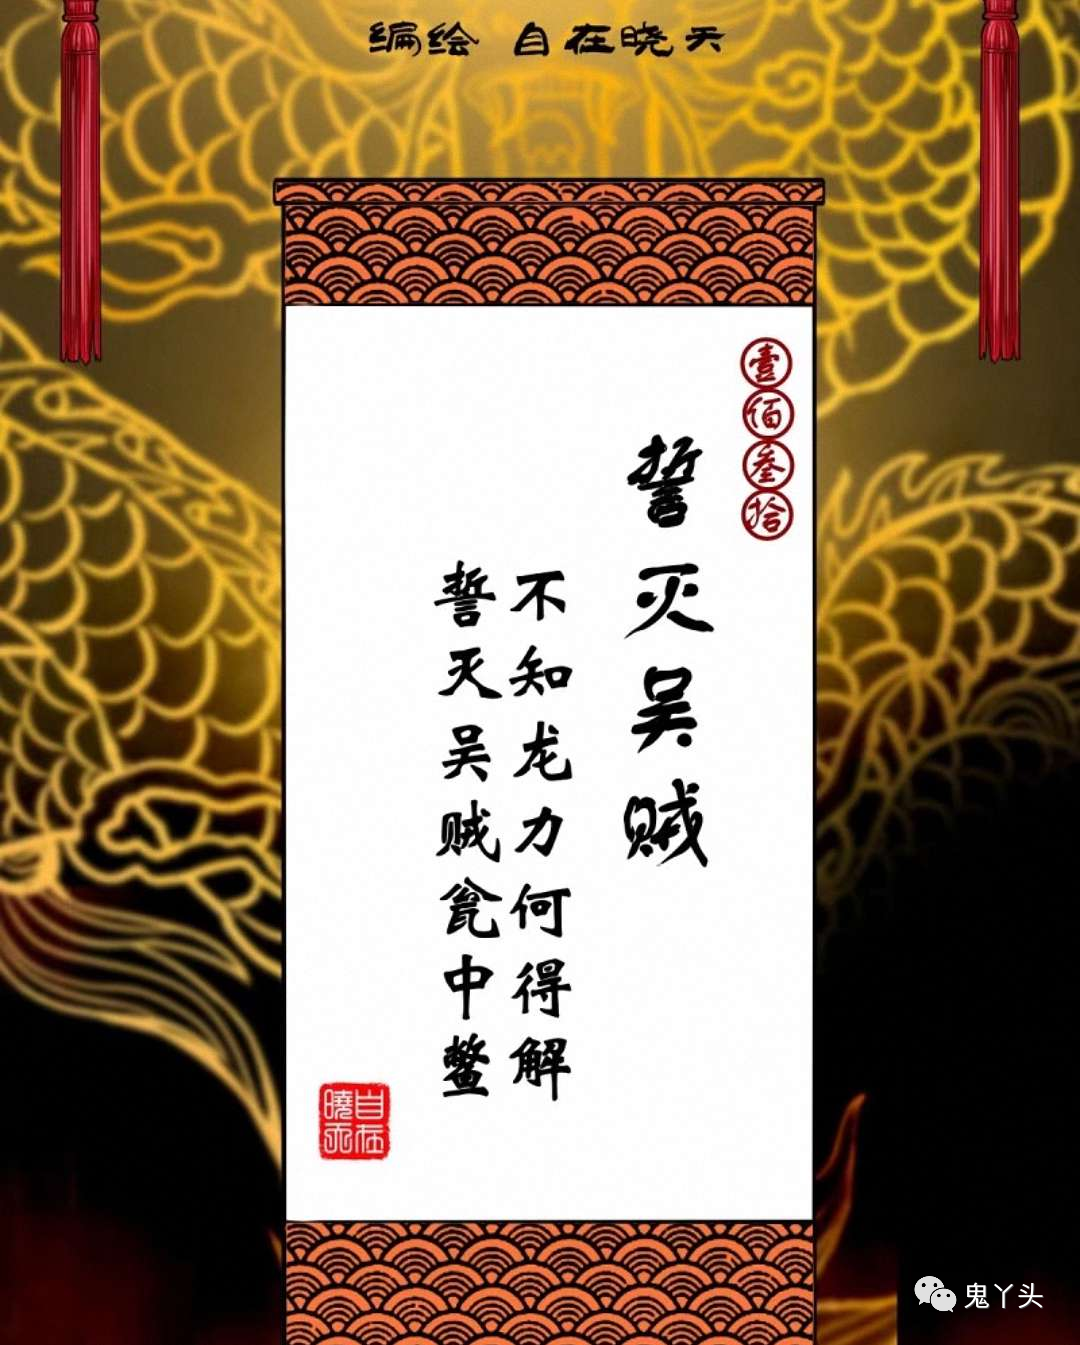 编绘 自在晓天
壹佰叁拾
誓灭吴贼
不知龙力何得解
誓灭吴贼瓮中鳖
自在曉天
鬼丫头